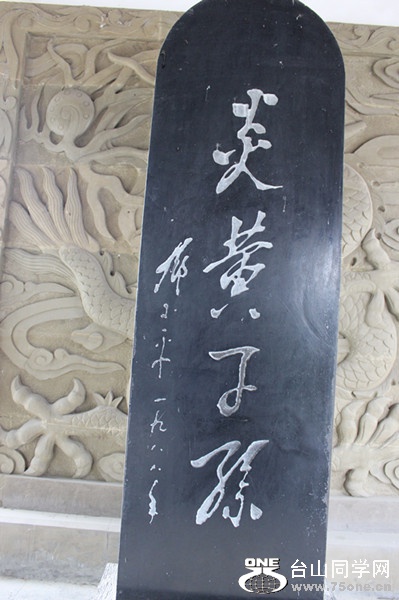 炎黄子孫
鄧小平
一九八八年
ONE
台山同学网
www.75one.cn